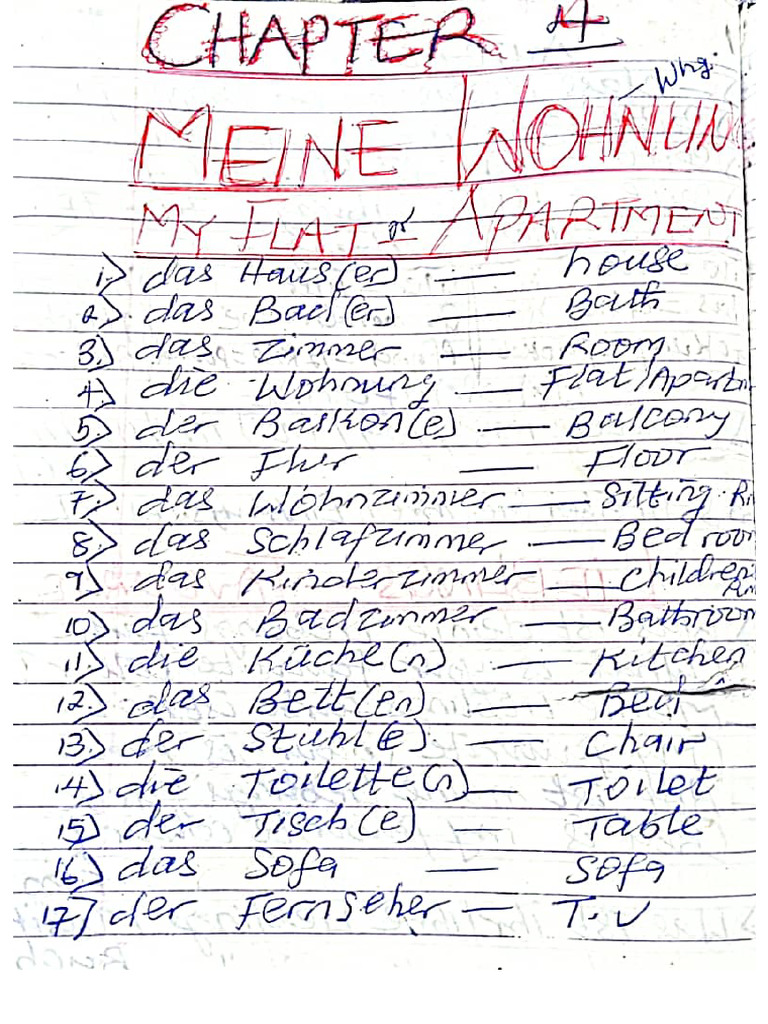 CHAPTER 4
Whg.
MEINE WOHNUN
MY FLAT or APARTMENT
1.) das Haus(er) — house
2.) das Bad(er) — Bath
3.) das Zimmer — Room
4.) die Wohnung — Flat/Apartm
5.) der Balkon(e) — Balcony
6.) der Flur — Floor
7.) das Wohnzimmer — Sitting R
8.) das Schlafzimmer — Bedroom
9.) das Kinderzimmer — Children
10.) das Badzimmer — Bathroom
11.) die Küche(n) — Kitchen
12.) das Bett(en) — Bed
13.) der Stuhl(e) — Chair
14) die Toilette(n) — Toilet
15) der Tisch(e) — Table
16) das Sofa — Sofa
17) der Fernseher — T.V